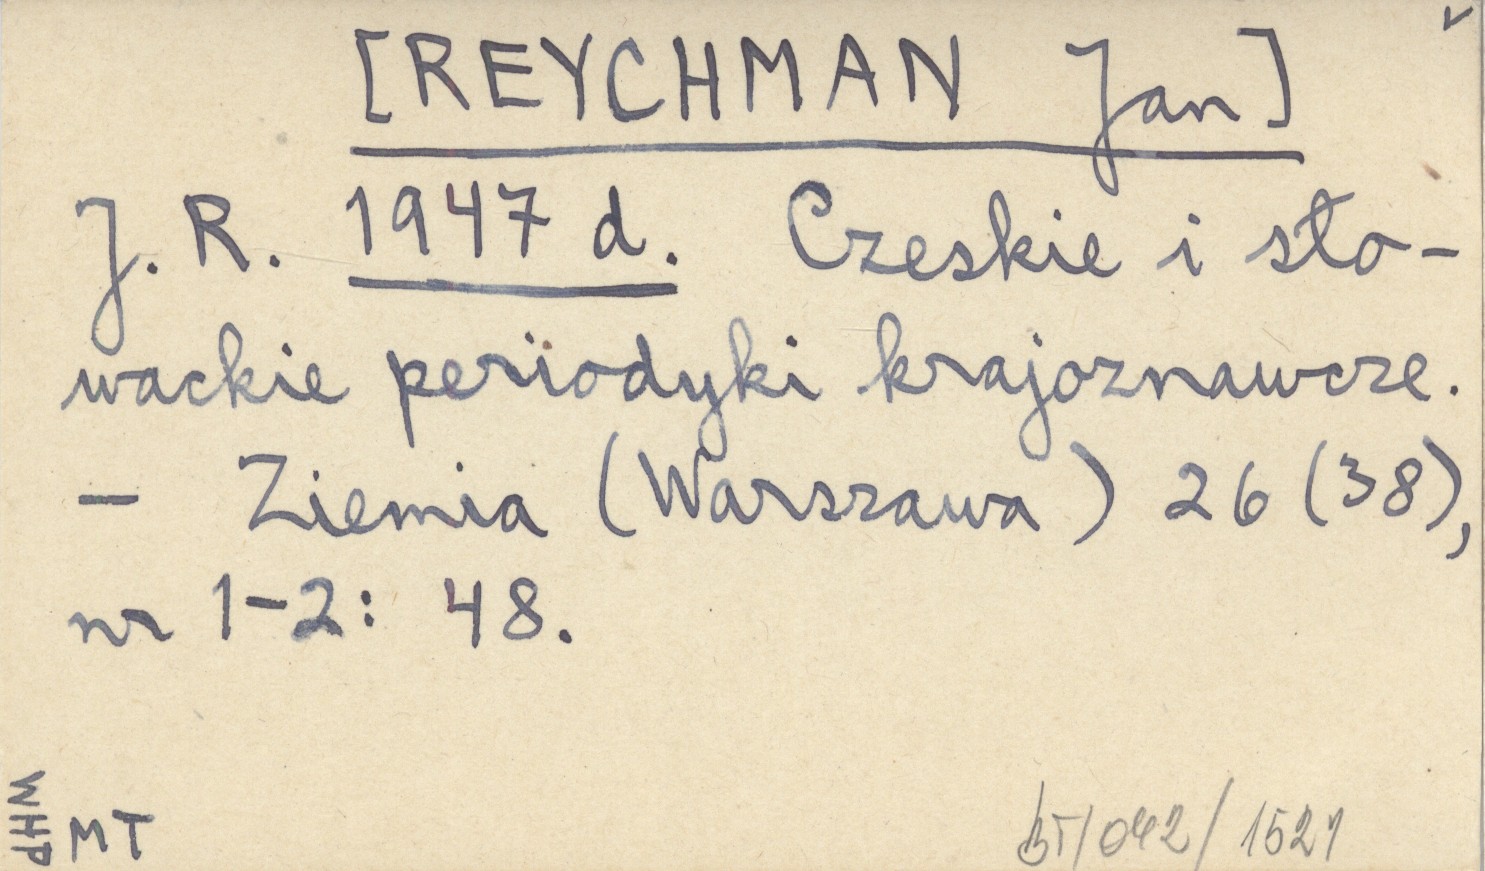 [REYCHMAN Jan]
J. R. 1947 d. Czeskie i sło-
wackie periodyki krajoznawcze.
— Ziemia (Warszawa) 26 (38),
nr 1-2: 48.
WHP
MT
BT/042/1521